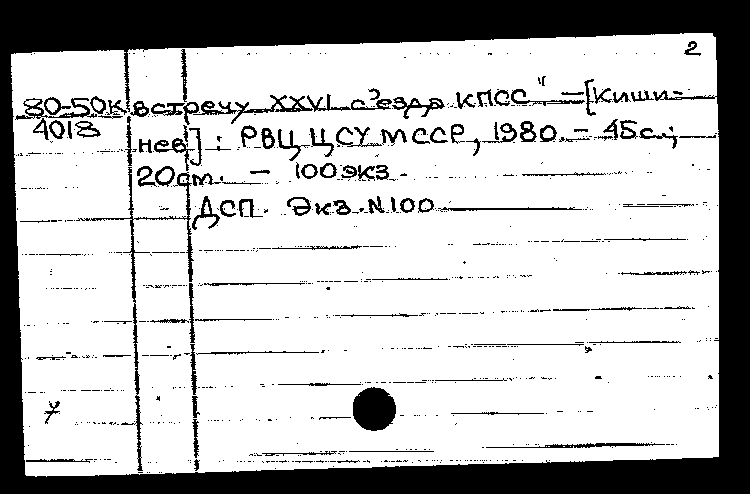 2
80-50к встречу XXVI с"езда КПСС" – [Киши-
4018 нев] : РВЦ ЦСУ МССР, 1980. – 45с.;
20 см. – 100 экз.
ДСП. Экз. N100
7